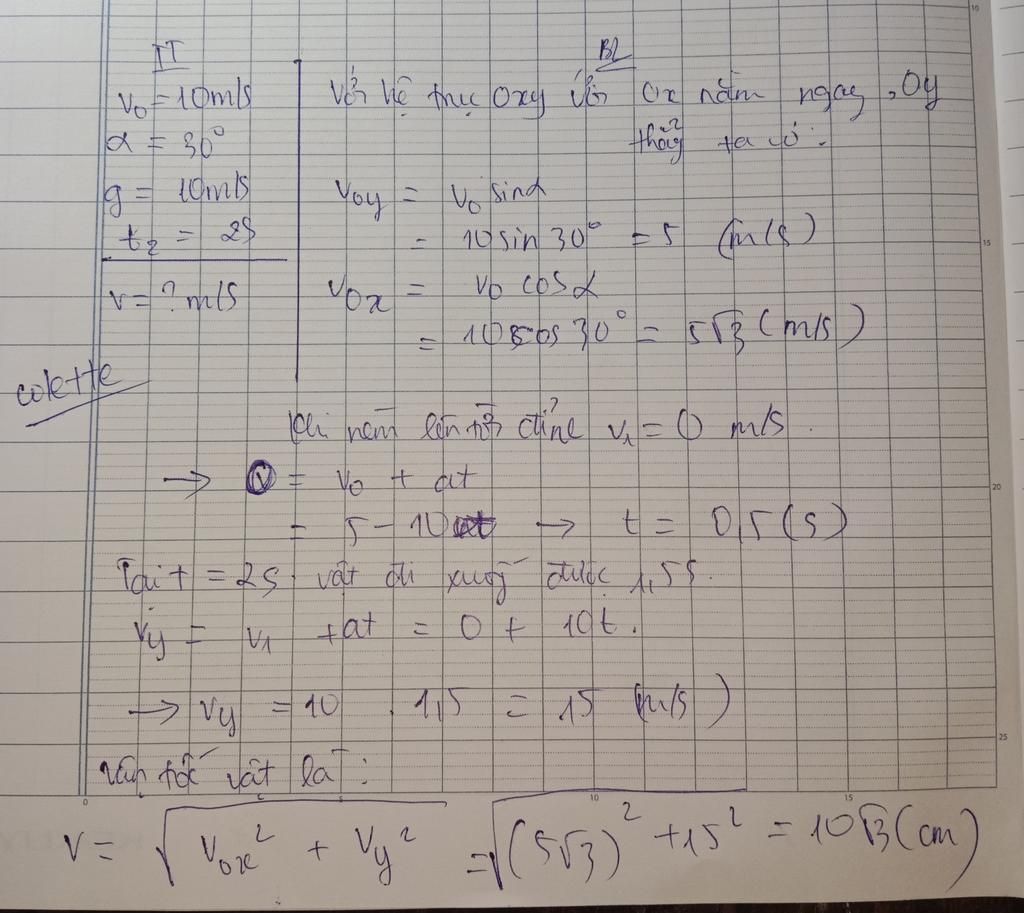 TT
v₀ = 10m/s
α = 30°
g = 10m/s
t₂ = 2s
v = ? m/s
BL
Với hệ trục Oxy với Ox nằm ngag, Oy
thẳg ta có:
v₀y = v₀ sinα
= 10 sin 30° = 5 (m/s)
v₀x = v₀ cosα
= 10 cos 30° = 5√3 (m/s)
colette
Khi ném lên tới đỉnh v₁ = 0 m/s.
→ v = v₀ + at
= 5 - 10t → t = 0,5 (s)
Tại t = 2s vật đi xuốg được 1,5s.
Vy = v₁ + at = 0 + 10t.
→ Vy = 10 . 1,5 = 15 (m/s)
vận tốc vật là:
V = √(V₀x² + Vy²) = √((5√3)² + 15²) = 10√3 (cm)
0
10
15
10
15
20
25